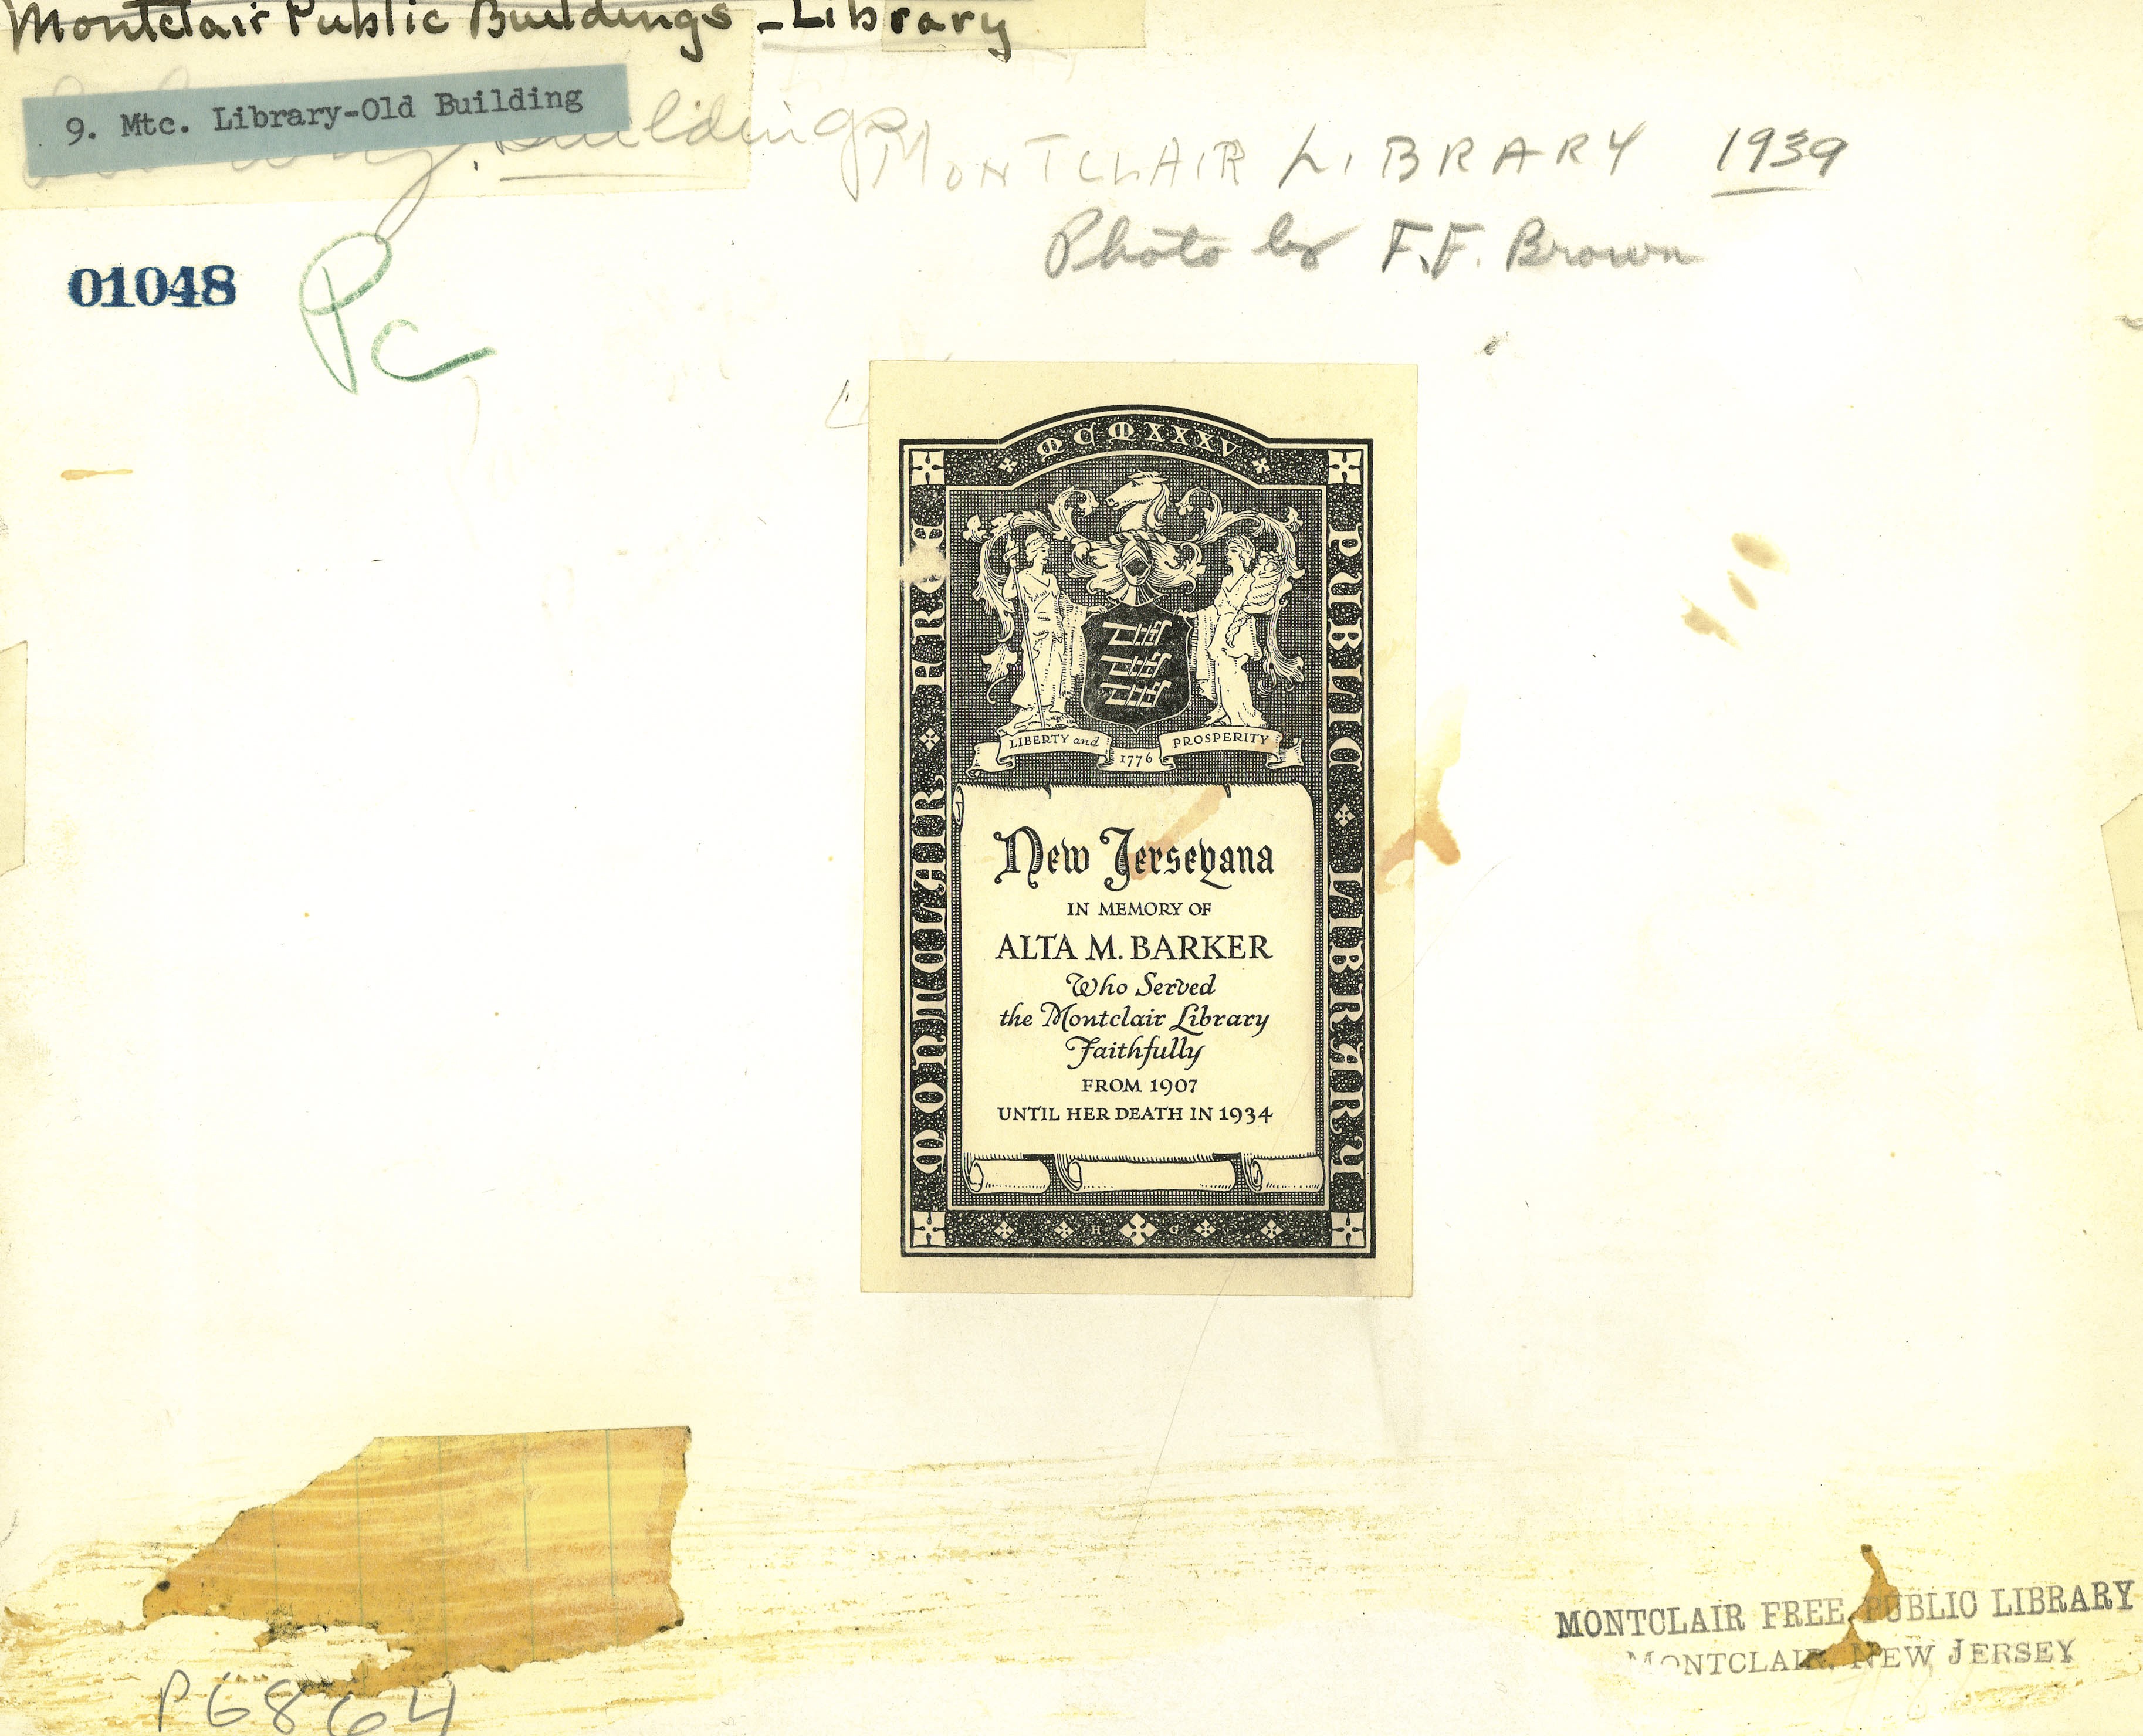 Montclair Public Buildings - Library
9. Mtc. Library-Old Building
Buildings
MONTCLAIR LIBRARY 1939
Photo by F.F. Brown
01048
Pc
MCMXXXV
MONTCLAIR FREE
PUBLIC LIBRARY
LIBERTY and
1776
PROSPERITY
New Jerseyana
IN MEMORY OF
ALTA M. BARKER
Who Served
the Montclair Library
Faithfully
FROM 1907
UNTIL HER DEATH IN 1934
H G
P6864
MONTCLAIR FREE PUBLIC LIBRARY
MONTCLAIR, NEW JERSEY